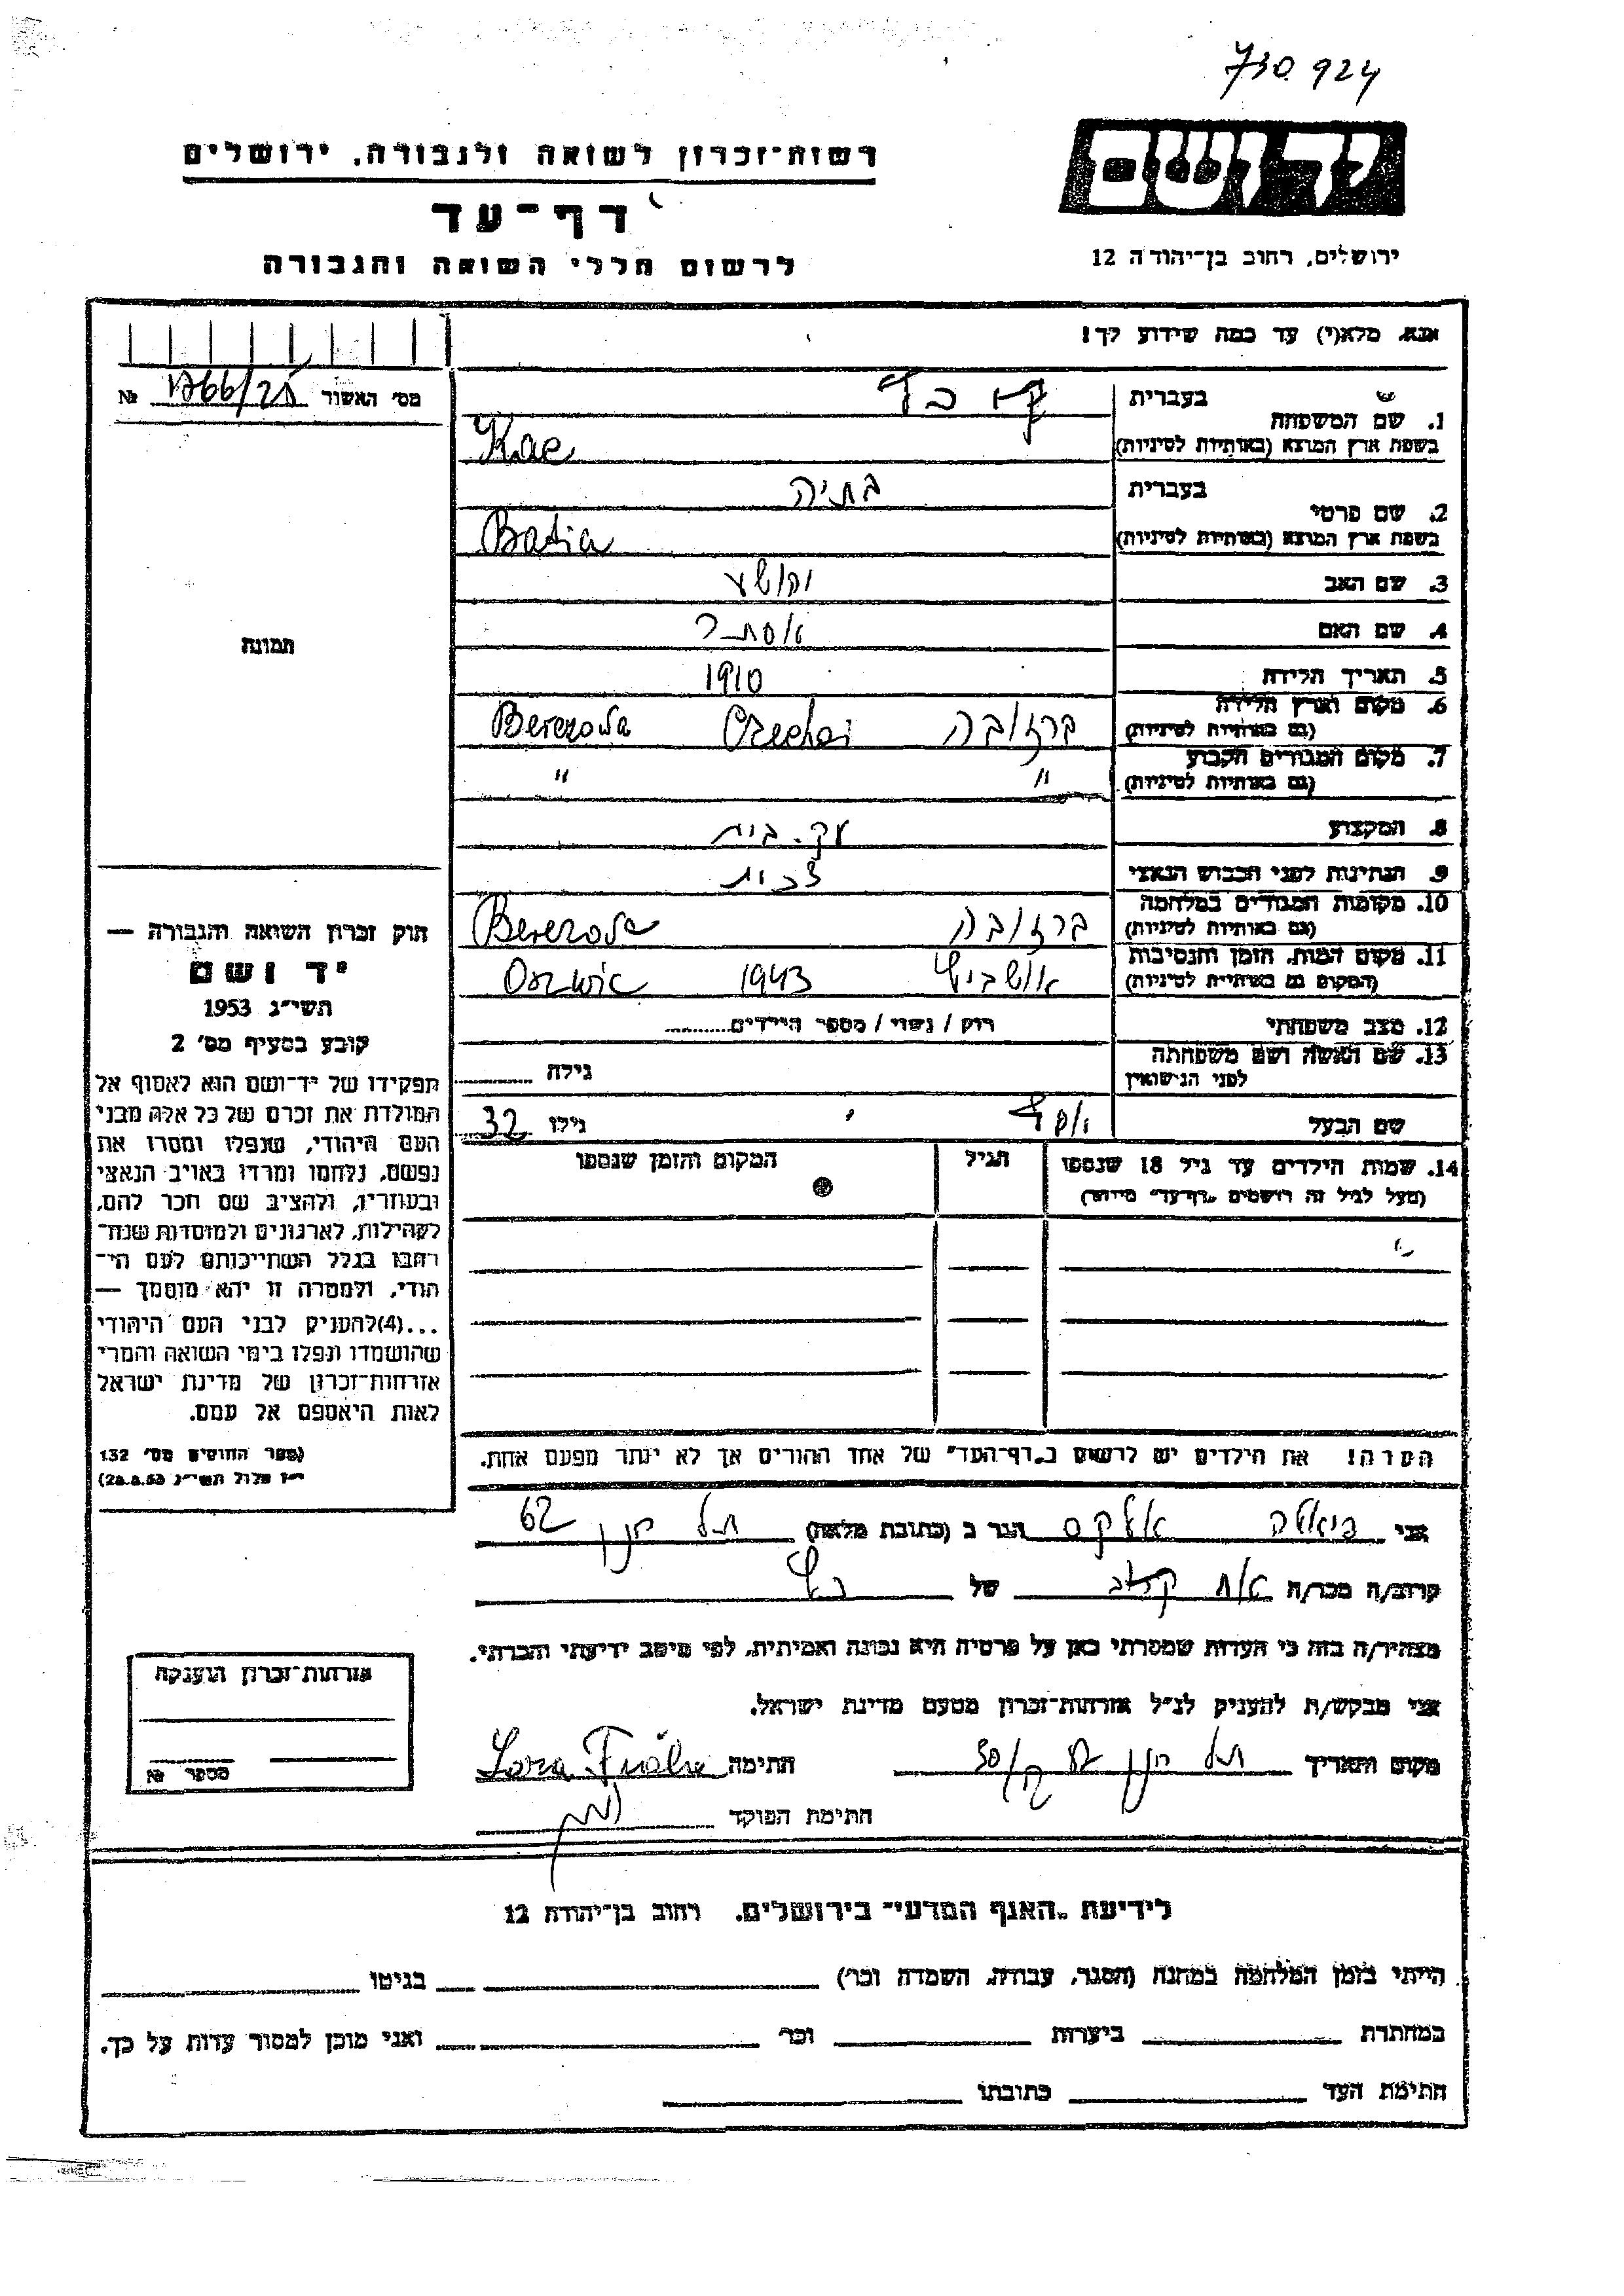 730924
יד ושם
רשות־זכרון לשואה ולגבורה, ירושלים
דף־עד
לרשום חללי השואה והגבורה
ירושלים, רחוב בן־יהודה 12
אנא, מלא(י) עד כמה שידוע לך!
מס' האשור №
1. שם המשפחה
בעברית
בשפת ארץ המוצא (באותיות לטיניות)
Kac
2. שם פרטי
בעברית בתיה
בשפת ארץ המוצא (באותיות לטיניות) Batia
3. שם האב
4. שם האם אסתר
5. תאריך הלידה 1910
6. מקום וארץ הלידה
(גם באותיות לטיניות) ברזובה Berezowa
7. מקום המגורים הקבוע
(גם באותיות לטיניות) " "
8. המקצוע עק. בית
9. הנתינות לפני הכבוש הנאצי
10. מקומות המגורים במלחמה
(גם באותיות לטיניות) ברזובה Berezowa
11. מקום המות, הזמן והנסיבות
(המקום גם באותיות לטיניות) אושביץ 1943
12. מצב משפחתי רווק / נשוי / מספר הילדים
13. שם האשה ושם משפחתה
לפני הנישואין גילה
שם הבעל גילו 32
14. שמות הילדים עד גיל 18 שנספו הגיל המקום והזמן שנספו
(מעל לגיל זה רושמים "דף־עד" מיוחד)
הערה! את הילדים יש לרשום ב"דף־העד" של אחד ההורים אך לא יותר מפעם אחת.
תמונה
חוק זכרון השואה והגבורה —
יד ושם
תשי"ג 1953
קובע בסעיף מס' 2
תפקידו של יד־ושם הוא לאסוף אל
המולדת את זכרם של כל אלה מבני
העם היהודי, שנפלו ומסרו את
נפשם, נלחמו ומרדו באויב הנאצי
ובעוזריו, ולהציב שם וזכר להם,
לקהילות, לארגונים ולמוסדות שנח־
רבו בגלל השתייכותם לעם הי־
הודי, ולמטרה זו יהא מוסמך —
...(4)להעניק לבני העם היהודי
שהושמדו ונפלו בימי השואה והמרי
אזרחות־זכרון של מדינת ישראל
לאות היאספם אל עמם.
(ספר החוקים מס' 132
י"ז אלול תשי"ג 28.8.53)
אני הגר ב (כתובת מלאה) תל חנן 62
קרוב/ה מכר/ה של כץ
מצהיר/ה בזה כי העדות שמסרתי כאן על פרטיה היא נכונה ואמיתית, לפי מיטב ידיעתי והכרתי.
אני מבקש/ת להעניק לנ"ל אזרחות־זכרון מטעם מדינת ישראל.
מקום ותאריך תל חנן חתימה
חתימת הפוקד
אזרחות־זכרון הוענקה
מספר №
לידיעת "האגף המדעי" בירושלים, רחוב בן־יהודה 12
הייתי בזמן המלחמה במחנה (הסגר, עבודה, השמדה וכו') בגיטו
במחתרת ביערות וכו' ואני מוכן למסור עדות על כך.
חתימת העד כתובתו